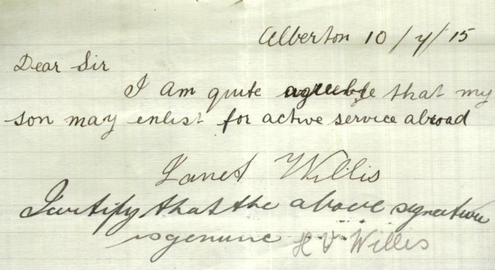 Alberton 10/7/15
Dear Sir
I am quite agreeable that my
son may enlist for active service abroad
Janet Willis
I certify that the above signature
is genuine H V Willis